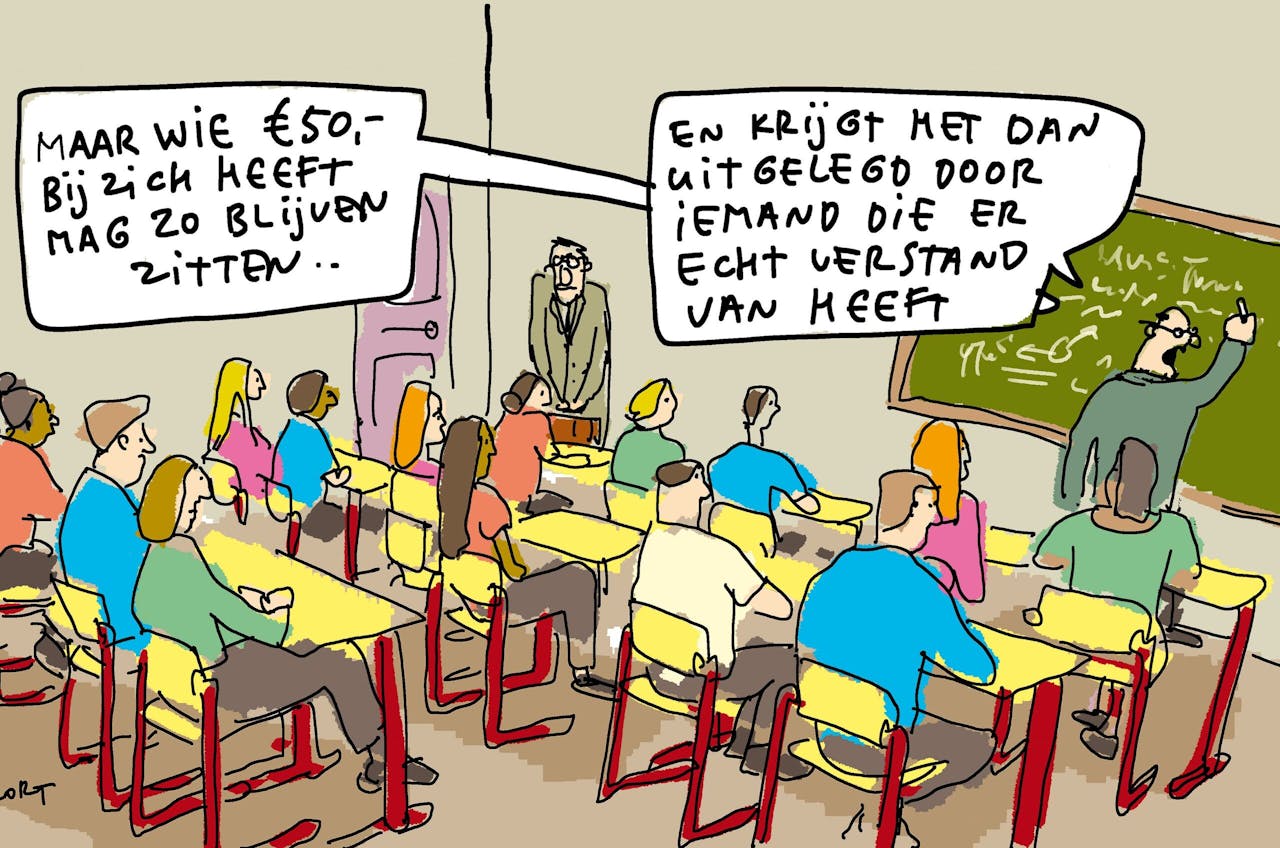 MAAR WIE €50,-
BIJ ZICH HEEFT
MAG ZO BLIJVEN
ZITTEN..
EN KRIJGT HET DAN
UITGELEGD DOOR
IEMAND DIE ER
ECHT VERSTAND
VAN HEEFT
ORT